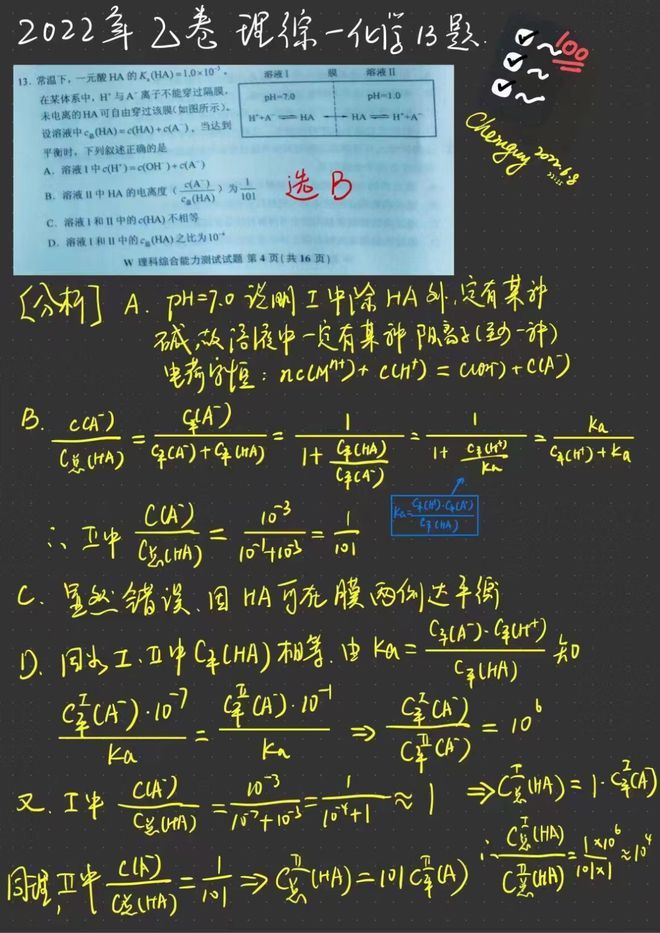 2022年 乙卷 理综-化学13题.
100
Chenguy 2022.6.8
13. 常温下，一元酸 HA 的 Kₐ(HA)=1.0×10⁻³。
在某体系中，H⁺ 与 A⁻ 离子不能穿过隔膜，
未电离的 HA 可自由穿过该膜(如图所示)。
设溶液中 c总(HA)=c(HA)+c(A⁻)，当达到
平衡时，下列叙述正确的是
溶液 I 膜 溶液 II
pH=7.0 pH=1.0
H⁺+A⁻ ⇌ HA ↔ HA ⇌ H⁺+A⁻
A. 溶液 I 中 c(H⁺)=c(OH⁻)+c(A⁻)
B. 溶液 II 中 HA 的电离度 (c(A⁻)/c总(HA)) 为 1/101
C. 溶液 I 和 II 中的 c(HA) 不相等
D. 溶液 I 和 II 中的 c总(HA) 之比为 10⁻⁴
选B
W 理科综合能力测试试题 第 4 页(共 16 页)
[分析] A. pH=7.0 说明 I 中除 HA 外, 定有某种
碱, 故溶液中一定有某种 阳离子(至少一种)
电荷守恒: nc(Mⁿ⁺) + c(H⁺) = c(OH⁻) + c(A⁻)
B. c(A⁻)/c总(HA) = c平(A⁻)/(c平(A⁻)+c平(HA)) = 1/(1+c平(HA)/c平(A⁻)) = 1/(1+c平(H⁺)/Ka) = Ka/(c平(H⁺)+Ka)
Ka=c平(H⁺)·c平(A⁻)/c平(HA)
∴ II中 c(A⁻)/c总(HA) = 10⁻³/(10⁻¹+10⁻³) = 1/101
C. 显然错误, 因 HA 可在膜两侧达平衡
D. 因为 I、II中 c平(HA) 相等, 由 Ka = c平(A⁻)·c平(H⁺)/c平(HA) 知
c平ᴵ(A⁻)·10⁻⁷/Ka = c平ᴵᴵ(A⁻)·10⁻¹/Ka ⇒ c平ᴵ(A⁻)/c平ᴵᴵ(A⁻) = 10⁶
又. I中 c(A⁻)/c总(HA) = 10⁻³/(10⁻⁷+10⁻³) = 1/(10⁻⁴+1) ≈ 1 ⇒ c总ᴵ(HA) = 1·c平ᴵ(A)
同理, II中 c(A⁻)/c总(HA) = 1/101 ⇒ c总ᴵᴵ(HA) = 101 c平ᴵᴵ(A) ∴ c总ᴵ(HA)/c总ᴵᴵ(HA) = 1×10⁶/101×1 ≈ 10⁴